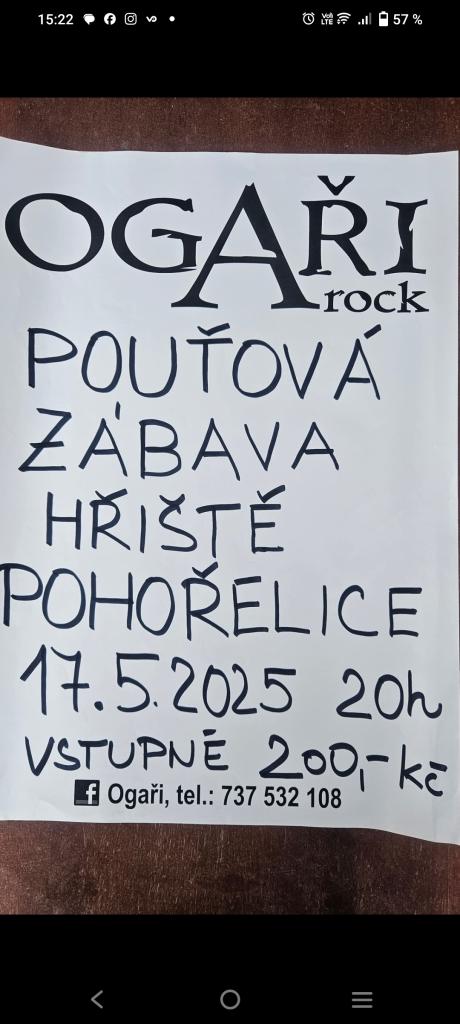 15:22 57 %
OGAŘI
rock
POUŤOVÁ
ZÁBAVA
HŘIŠTĚ
POHOŘELICE
17.5.2025 20h
VSTUPNÉ 200,- kč
Ogaři, tel.: 737 532 108